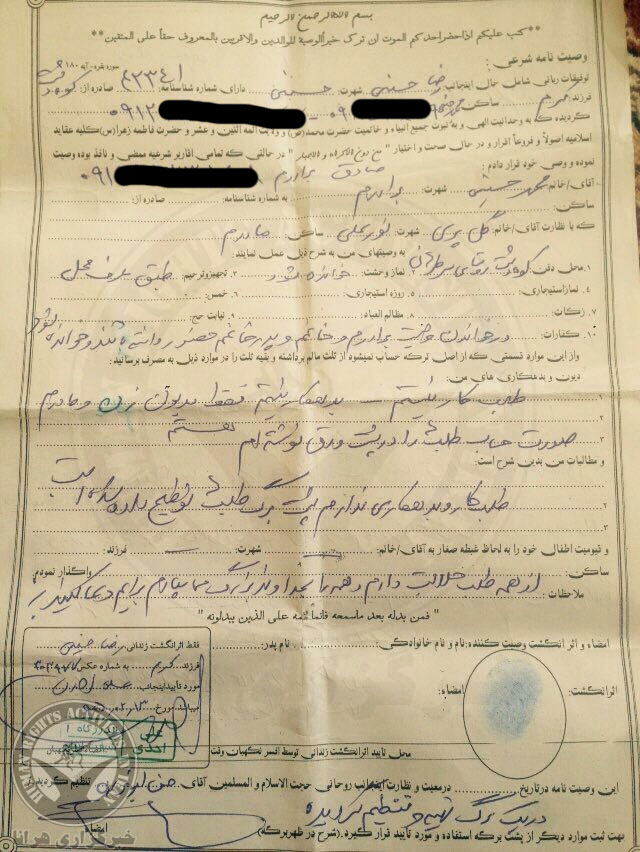 بسم الله الرحمن الرحیم
**کتب علیکم اذا حضر احدکم الموت ان ترک خیراً الوصیة للوالدین والاقربین بالمعروف حقاً علی المتقین**
سوره بقره- آیه ۱۸۰
وصیت نامه شرعی:
توفیقات ربانی شامل حال اینجانب رضا حسینی شهرت: حسینی دارای شماره شناسنامه ۴۲۳۴۱ صادره از:
فرزند ساکن ۰۹۱۲
گردیده که به وحدانیت الهی و به نبوت جمیع انبیاء و خاتمیت حضرت محمد(ص) و ولایت ائمه اثنین و عشر و حضرت فاطمه زهرا(س) کلیه عقاید
اسلامیه اصولاً و فروعاً اقرار و در حال صحت و اختیار "من دون الاکراه و الاجبار" در حالتی که تمامی اقاریر شرعیه ممضی و نافذ بوده وصیت
نموده و وصی خود قرار دادم: صادق برادرم ۰۹۱
آقای/خانم: محمد حسینی شهرت: برادرم به شماره شناسنامه: صادره از:
ساکن:
که با نظارت آقای/خانم: گل پری شهرت: نورعلی ساکن: مادرم
به وصیتهای من به شرح ذیل عمل نمایند:
۱. محل دفن کوهدشت روستای ۲. نماز وحشت: خوانده شود ۳. تجهیز و ترحیم: طبق عرف محل
۴. نماز استیجاری: ۵. روزه استیجاری: ۶. خمس:
۷. زکات: ۸. مظالم العباد: ۹. نیابت حج:
۱۰. کفارات: در خواندن وصیت برادرم و خانمم و پدر خانمم حضور داشته باشند و خوانده شود
واز این موارد قسمتی که از اصل ترکه حساب نمیشود از ثلث مالم برداشته و بقیه ثلث را در موارد ذیل به مصرف برسانید:
دیون و بدهکاری های من:
۱ طلب کار نیستم – بدهکار نیستم فقط مدیون زن و مادرم
۲ هستم
۳ صورت حساب طلب را در پشت ورق نوشته ام
و مطالبات من بدین شرح است:
۱
۲ طلبکار و بدهکاری ندارم پشت برگ طلب توضیح داده شده است
۳
و قیمومیت اطفال خود را به لحاظ غبطه صغار به آقای/خانم: شهرت: — فرزند:
ساکن: واگذار نمودم.
ملاحظات: از همه طلب حلالیت دارم و همه را بخدا
"فمن بدله بعد ما سمعه فانما اثمه علی الذین یبدلونه"
امضاء و اثر انگشت وصیت کننده: نام و نام خانوادگی: نام پدر:
اثرانگشت: امضاء:
فقط اثرانگشت زندانی رضا حسینی
فرزند کریم به شماره
مورد تایید اینجانب
میباشد مورخ
محل تایید اثرانگشت زندانی توسط افسر نگهبان وقت
این وصیت نامه در تاریخ در معیت و نظارت اینجانب روحانی حجت الاسلام و المسلمین آقای تنظیم گردید
در یک برگ تهیه و تنظیم گردیده
امضاء
جهت ثبت موارد دیگر از پشت برگه استفاده و مورد تایید قرار گیرد. (شرح در ظهر برگه)
HUMAN RIGHTS ACTIVISTS IN IRAN
خبرگزاری هرانا